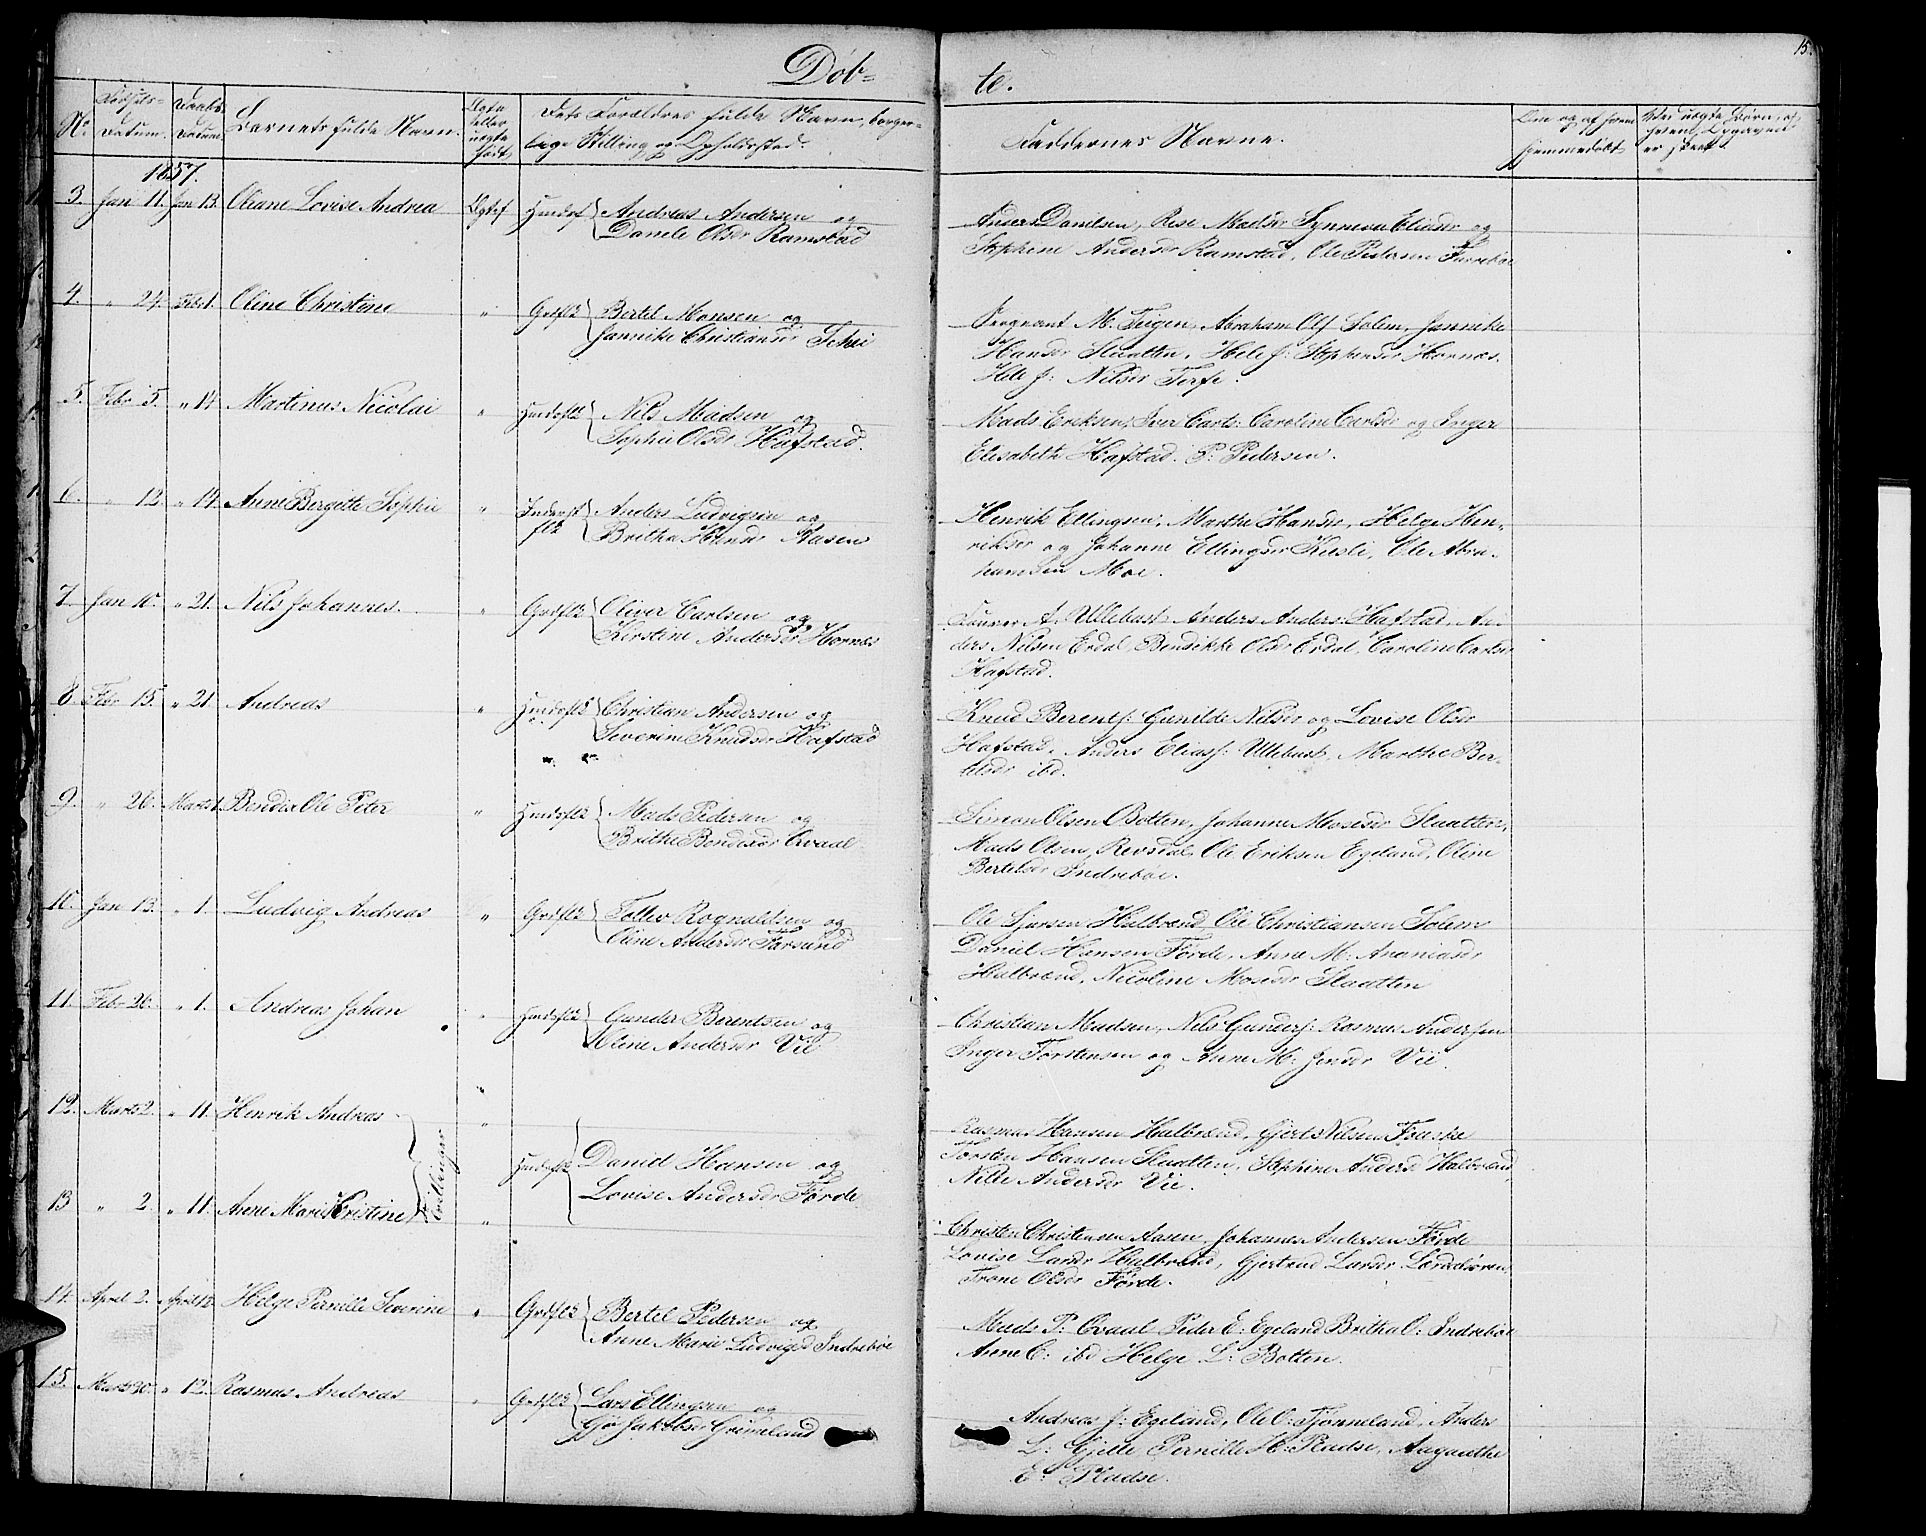 Døb-
te.
15.
No
Fødsels-
Datum.
Daabs
Datum
Barnets fulde Navn.
Ægte
eller
uægte
født
Dets Forældres fulde Navn, borger-
lige Stilling og Opholdssted.
Faddernes Navne.
Om og af hvem
hjemmedøbt
1857.
3. Jan 11. Jan 13. Oliane Lovise Andrea Ægtef Andreas Andersen og
Olsdr Ramstad
Anders Danielsen, Madsdr Synneva Eliasdr og
Stephine Andersdr Ramstad, Ole Pedersen
4. " 24. Febr 1. Oline Christine " Grdflk Bertel Monsen og
Jannike Christiansdr
Sergeant M. Teigen, Abraham Ols Solem, Jannike
Hansdr Slaatten, Stephensdr Hornæs.
Nilsdr
5. Febr 5. " 14 Martinus Nicolai " Husdsflk Nils Madsen og
Sophie Olsdr Hafstad.
Mads Eriksen, Iver Carls: Caroline Carlsdr og Inger
Elisabeth Hafstad. P: Pedersen.
6. " 12. " 14. Anne Bergitte Sophie " Inderst
flk Anders Ludvigsen og
Britha Hansdr Aasen
Henrik Ellingsen, Marthe Hansdr, Helge Hen-
riksdr og Johanne Ellingsdr Kusli, Ole Abra-
hamsen Moe.
7. Jan 10. " 21. Nils Johannes. " Grdflk Oliver Carlsen og
Kirstine Andersdr Hornæs
A. Ullebust Anders Anders: Hafstad, An-
ders Nilsen Erdal, Bendikke Olsdr Erdal, Caroline Carlsdr
Hafstad.
8. Febr 15. " 21. Andreas " Husdsflk Christian Andersen og
Severine Knudsdr Hafstad
Knud Berents: Gunilde Nilsdr og Lovise Olsdr
Hafstad, Anders Elias: Ullebust, Marthe Ber-
telsdr ibd.
9. " 26. Marts 1. Bendix Ole Peter " Husdsflk Mads Pedersen og
Brithe Bendixdr Qvaal
Simon Olsen Botten, Johanne Mosesdr Slaatten,
Mads Olsen Revsdal, Ole Eriksen Egeland, Oline
Bertelsdr Indrebøe.
10. Jan 13. " 1. Ludvig Andreas " Grdflk Tollev Rognaldsen og
Oline Andersdr Farsund
Ole Halbrend, Ole Christiansen Solem
Daniel Hansen Førde, Anne M: Ananiasdr
Halbrend, Nicoline Mosesdr Slaatten
11. Febr 26. " 1. Andreas Johan " Husdsflk Gunder Berentsen og
Oline Andersdr Vie
Christian Madsen, Nils Gunders: Rasmus Andersen
Inger Torstensen og Anne M: Jensdr Vie.
12. Marts 2. " 11. Henrik Andreas "
Tvillinger
Husdsflk Daniel Hansen og
Lovise Andersdr Førde
Rasmus Hansen Halbrend, Gjert Nilsen Fauske
Torsten Hansen Slaatten, Stephine Andersd Halbrend,
Nille Andersdr Vie.
13 " 2. " 11. Anne Marie Kristine "
Christen Christensen Aasen, Johannes Andersen Førde
Lovise Larsdr Halbrend, Gjertrud Larsdr Lærdalsøren,
Trone Olsdr Førde.
14. April 2. April 12. Helge Pernille Severine " Grdflk Bertel Pedersen og
Anne Marie Ludvigsd Indrebøe
Mads P: Qvaal Peder E: Egeland Britha O: Indrebøe
Anne C: ibd Helge L: Botten.
15. Marts 30. " 12. Rasmus Andreas " Grdflk Lars Ellingsen og
Gjø Jakobsdr Grimeland
Andreas J: Egeland, Ole O: Tjønneland, Anders
L: Gjelle Pernille H: Pladse, Aagaathe
E: Pladse.